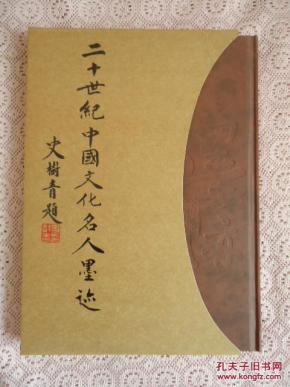 二十世紀中國文化名人墨迹
史樹青題
孔夫子旧书网
www.kongfz.com